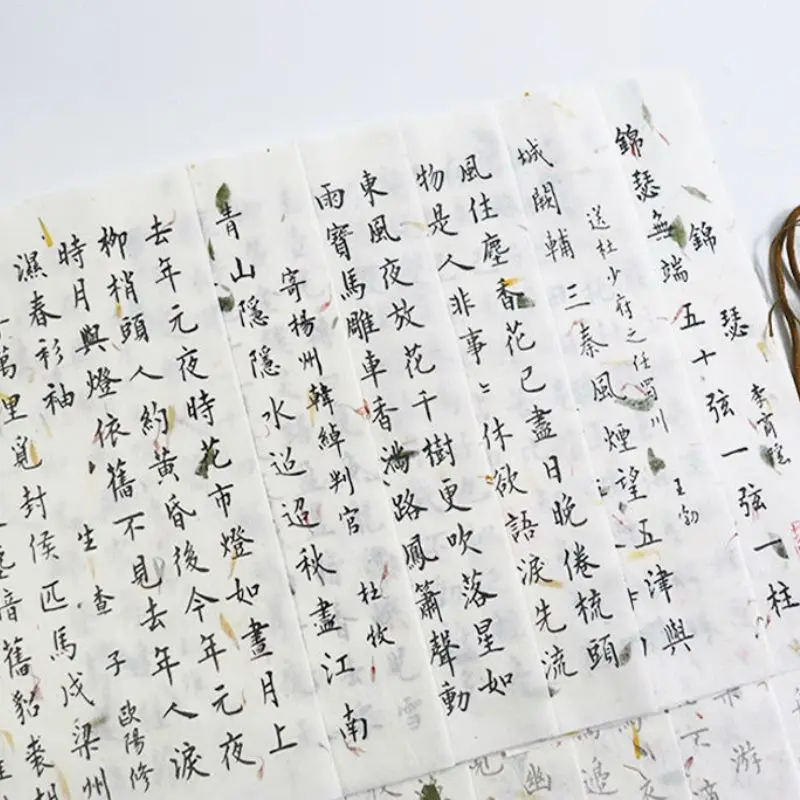 錦瑟 李商隱
錦瑟無端五十弦一弦一柱
送杜少府之任蜀川 王勃
城闕輔三秦風煙望五津與
風住塵香花已盡日晚倦梳頭
物是人非事〻休欲語淚先流
東風夜放花千樹更吹落星如
雨寶馬雕車香滿路鳳簫聲動
寄揚州韓綽判官 杜牧
青山隱隱水迢迢秋盡江南
去年元夜時花市燈如晝月上
柳梢頭人約黃昏後今年元夜
時月與燈依舊不見去年人淚
濕春衫袖 生查子 歐陽修
萬里覓封侯匹馬戍梁州
暗舊貂裘胡